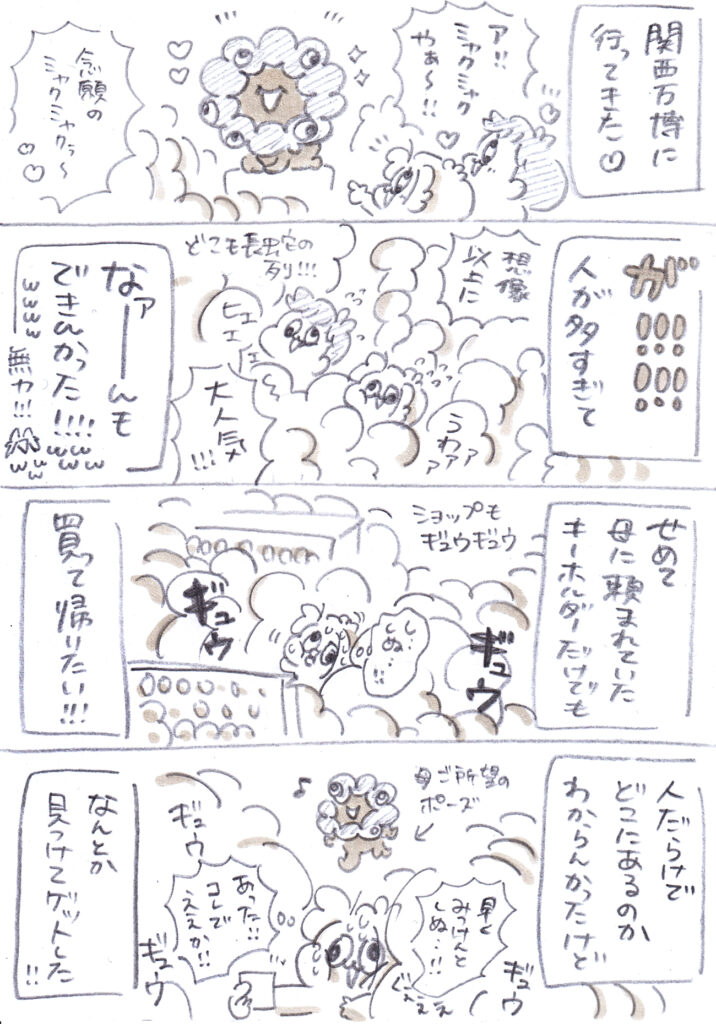 関西万博に
行ってきた♡
ア!!
ミャクミャク
やぁ〜!!
念願の
ミャクミャクぅ〜
が!!!!!!
人が多すぎて
想像
以上に
どこも長蛇の
列!!!
ヒェ
ェェ
うわァ
ァァ
大人気
!!!
なァーーんも
できんかった!!!!
wwww
無力!!!
www
www
せめて
母に頼まれていた
キーホルダーだけでも
ショップも
ギュウギュウ
ギュウ
しぬ…
!!
ギュウ
買って帰りたい!!!
人だらけで
どこにあるのか
わからんかったけど
母ご所望の
ポーズ
♪
早く
みつけんと
しぬ…!!
ぐぇぇぇ
ギュウ
ギュウ
あった!!
コレで
ええか!!
ギュウ
なんとか
見つけてゲットした
!!